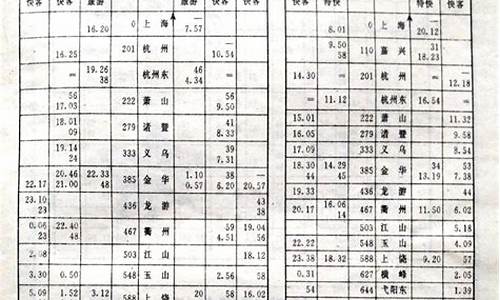 快客 快客 旅游 旅游 快客 快客
16.20 0 上海 7.57
16.25 201 杭州 10.54
= 19.26 38 杭州东 46 4.34 =
56 17.03 222 萧山 56 9.50
18.01 09 279 诸暨 41 8.33
19.14 24 333 义乌 39 7.31
22.17 20.46 21.00 22.33 48 385 金华 1.10 0.57 38 6.20 20.57
23.10 23 436 龙游 43 38
0.06 23 22.40 48 467 衢州 59 4.51 19.04 56
2.08 503 江山 18.12
3.30 0.50 548 玉山 2.56 58
5.09 1.52 3.12 588 上饶 20 58 16.02
快客 特快 特快 快客
8.01 0 上海 20.12
9.50 58 110 嘉兴 31 18.23
14.30 = 201 杭州 = 12.18
= 11.12 杭州东 16.54 =
15.01 222 萧山 11.32
16.01 279 诸暨 9.58
17.09 333 义乌 8.54
18.30 44 14.29 45 385 金华 34 13.19 53 7.38
19.33 436 龙游 44
20.17 16.06 14 467 衢州 11.50 6.02
503 江山 5.18
22.22 548 玉山 4.09
23.38 18.32 588 上饶 9.20 57
0.31 627 横峰 2.05
54 644 弋阳东 1.39